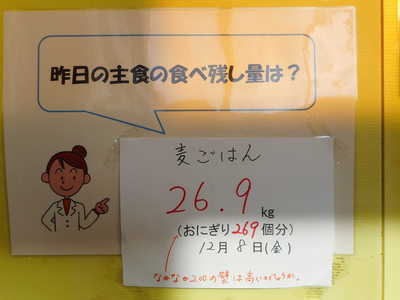 昨日の主食の食べ残し量は？
麦ごはん
26.9 kg
(おにぎり269個分)
12月8日(金)
なかなか200の壁は高いでしょうか。